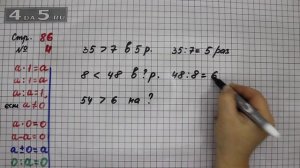 4DA5.NET
Стр. 86
№ 4
35 > 7 в 5 р. 35:7=5 раз
8 < 48 в ? р. 48:8=6
54 > 6 на ?
a·1=a
a:1=a
a:a=1,
если a≠0
a·0=0
a-a=0
a±0=a
0:a=0